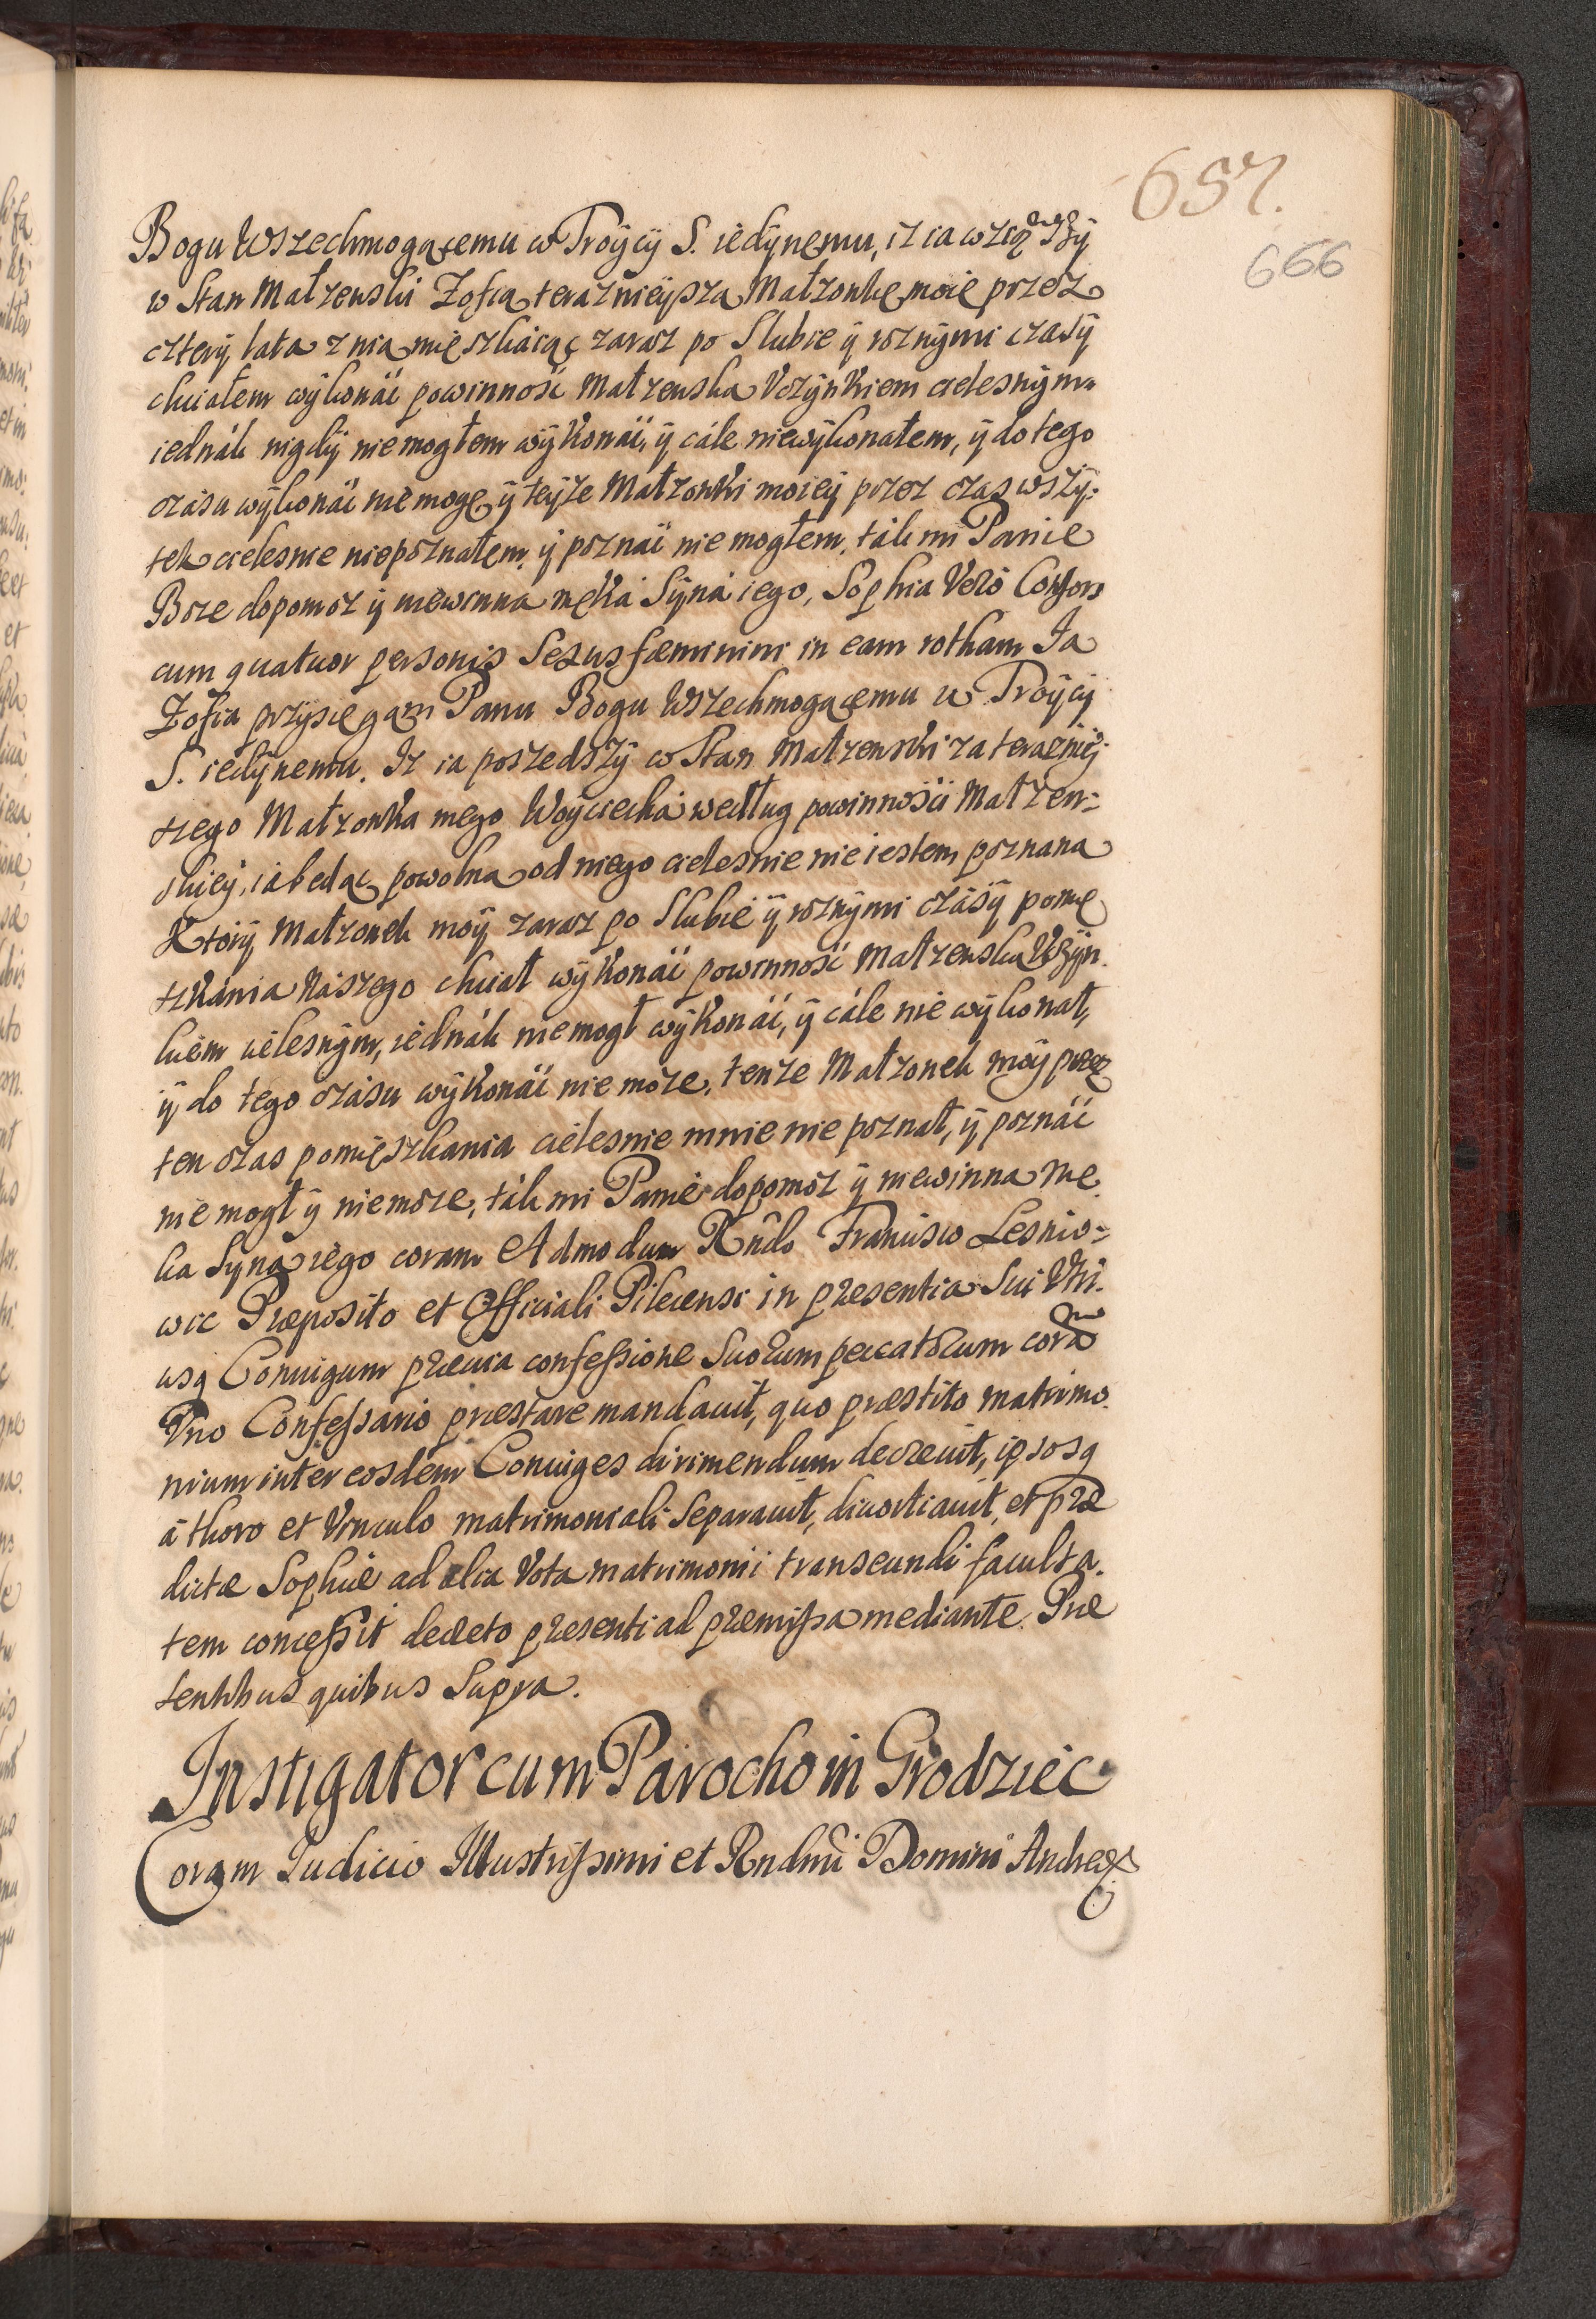 657.
666
Bogu Wszechmogącemu w Troÿcÿ S. iedÿnemu, iz ia wziąwszÿ
w Stan Małzenski Zofią teraznieÿszą Małzonkę moię przez
czterÿ lata z nią mięszkaiąc zaraz po Slubie ÿ roznÿmi czasÿ
chciałem wÿkonáć powinnosć Małzenską Vczÿnkiem cielesnÿm
iednák nigdÿ niemogłem wÿkonáć, ÿ cále niewÿkonałem, ÿ do tego
czásu wÿkonáć niemogę ÿ teÿze Małzonki moieÿ przez czas wszÿ:
tek cielesnie niepoznałem, ÿ poznáć nie mogłem, ták mi Panie
Boze dopomoz ÿ niewinna męká Sÿná iego, Sophia Verò Consors
cum quatuor personis Sexus fæminini in eam rotham Ja
Zofia przÿsięgam Panu Bogu Wszechmogącemu w Troÿcÿ
S. iedÿnemu. Iz ia poszedszÿ w Stan Małzenski za terazniÿ
szego Małzonka mego Woÿciechá według powinnosći Małzen:
skieÿ, iá będąc powolną od niego cielesnie nie iestem poznana
Ktorÿ Małzonek moÿ zaraz po Slubie ÿ roznÿmi czásÿ pomię
szkánia nászego chciał wÿkonáć powinnosć Małzenską Vczÿn
kiem cielesnÿm, iednák niemogł wÿkonáć, ÿ cále nie wÿkonał,
ÿ do tego czásu wÿkonáć nie moze, tenze Małzonek moÿ przez
ten czas pomięszkania cielesnie mnie nie poznał, ÿ poznáć
nie mogł ÿ niemoze, ták mi Panie dopomoz ÿ niewinna mę
ka Syna iego coram Admodum Rndo Francisco Lesnio=
wic Præposito et Officiali Pilecensi in præsentia Sui Vtri
usq Coniugum præuia confessione Suorum peccatorum corã
Vno Confessario præstare mandauit, quo præstito matrimo
nium inter eosdem Coniuges dirimendum decreuit, ipsosq
à thoro et Vinculo matrimoniali Separauit, diuortiauit, et præ
dictæ Sophiæ ad alia Vota matrimonii transeundi faculta
tem concessit decreto præsenti ad præmissa mediante. Præ
sentibus quibus Supra.
Instigator cum Parocho in Grodziec
Coram Iudicio Illustrissimi et Rndmi Domini Andreæ